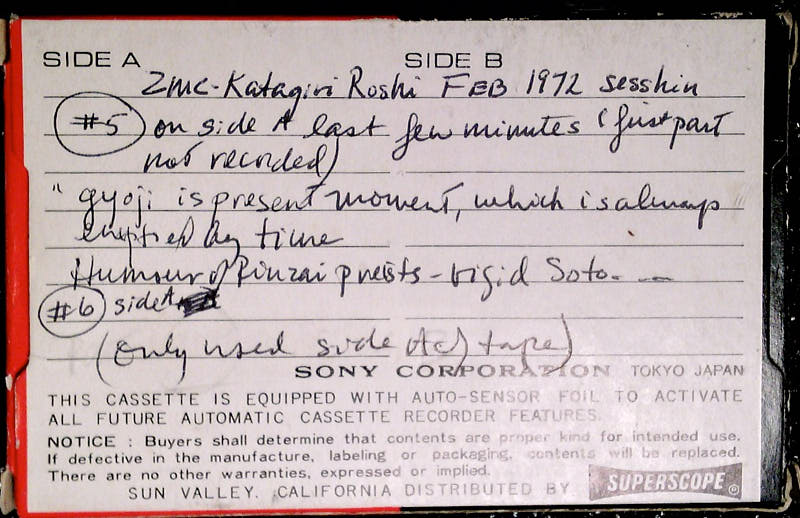 SIDE A SIDE B
ZMC-Katagiri Roshi FEB 1972 sesshin
#5 on side A last few minutes (first part
not recorded)
"gyoji is present moment, which is always"
emptied by time
Humour of Rinzai preists - rigid Soto. --
#6 side A
(only used side A of tape)
SONY CORPORATION TOKYO JAPAN
THIS CASSETTE IS EQUIPPED WITH AUTO-SENSOR FOIL TO ACTIVATE
ALL FUTURE AUTOMATIC CASSETTE RECORDER FEATURES.
NOTICE : Buyers shall determine that contents are proper kind for intended use.
If defective in the manufacture, labeling or packaging, contents will be replaced.
There are no other warranties, expressed or implied.
SUN VALLEY, CALIFORNIA DISTRIBUTED BY SUPERSCOPE®